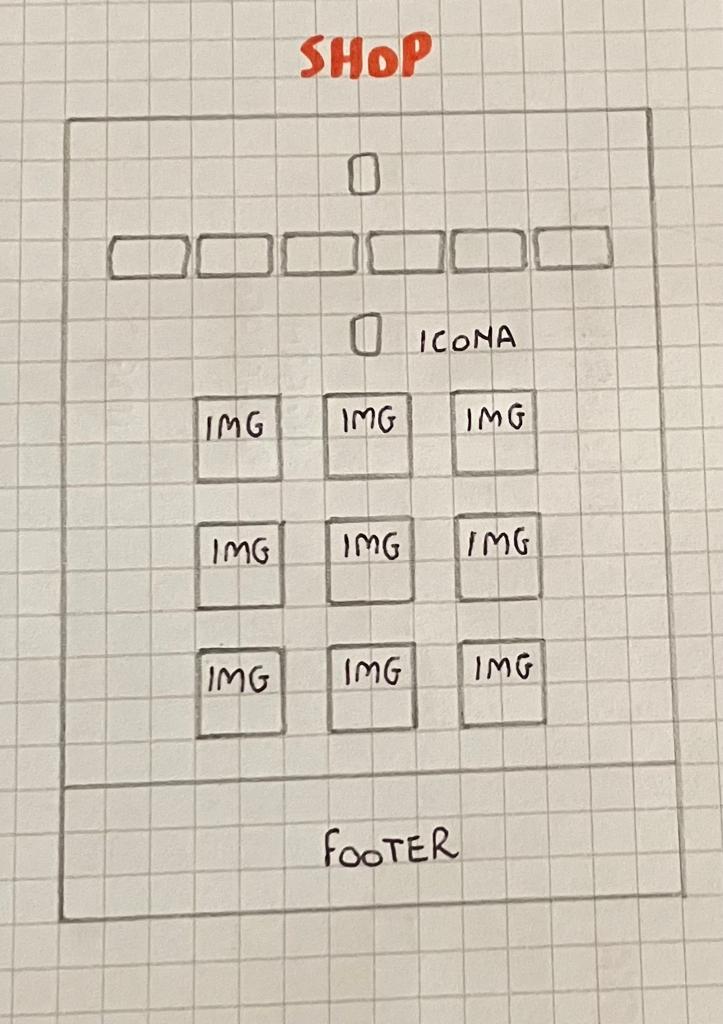 SHOP
ICONA
IMG IMG IMG
IMG IMG IMG
IMG IMG IMG
FOOTER